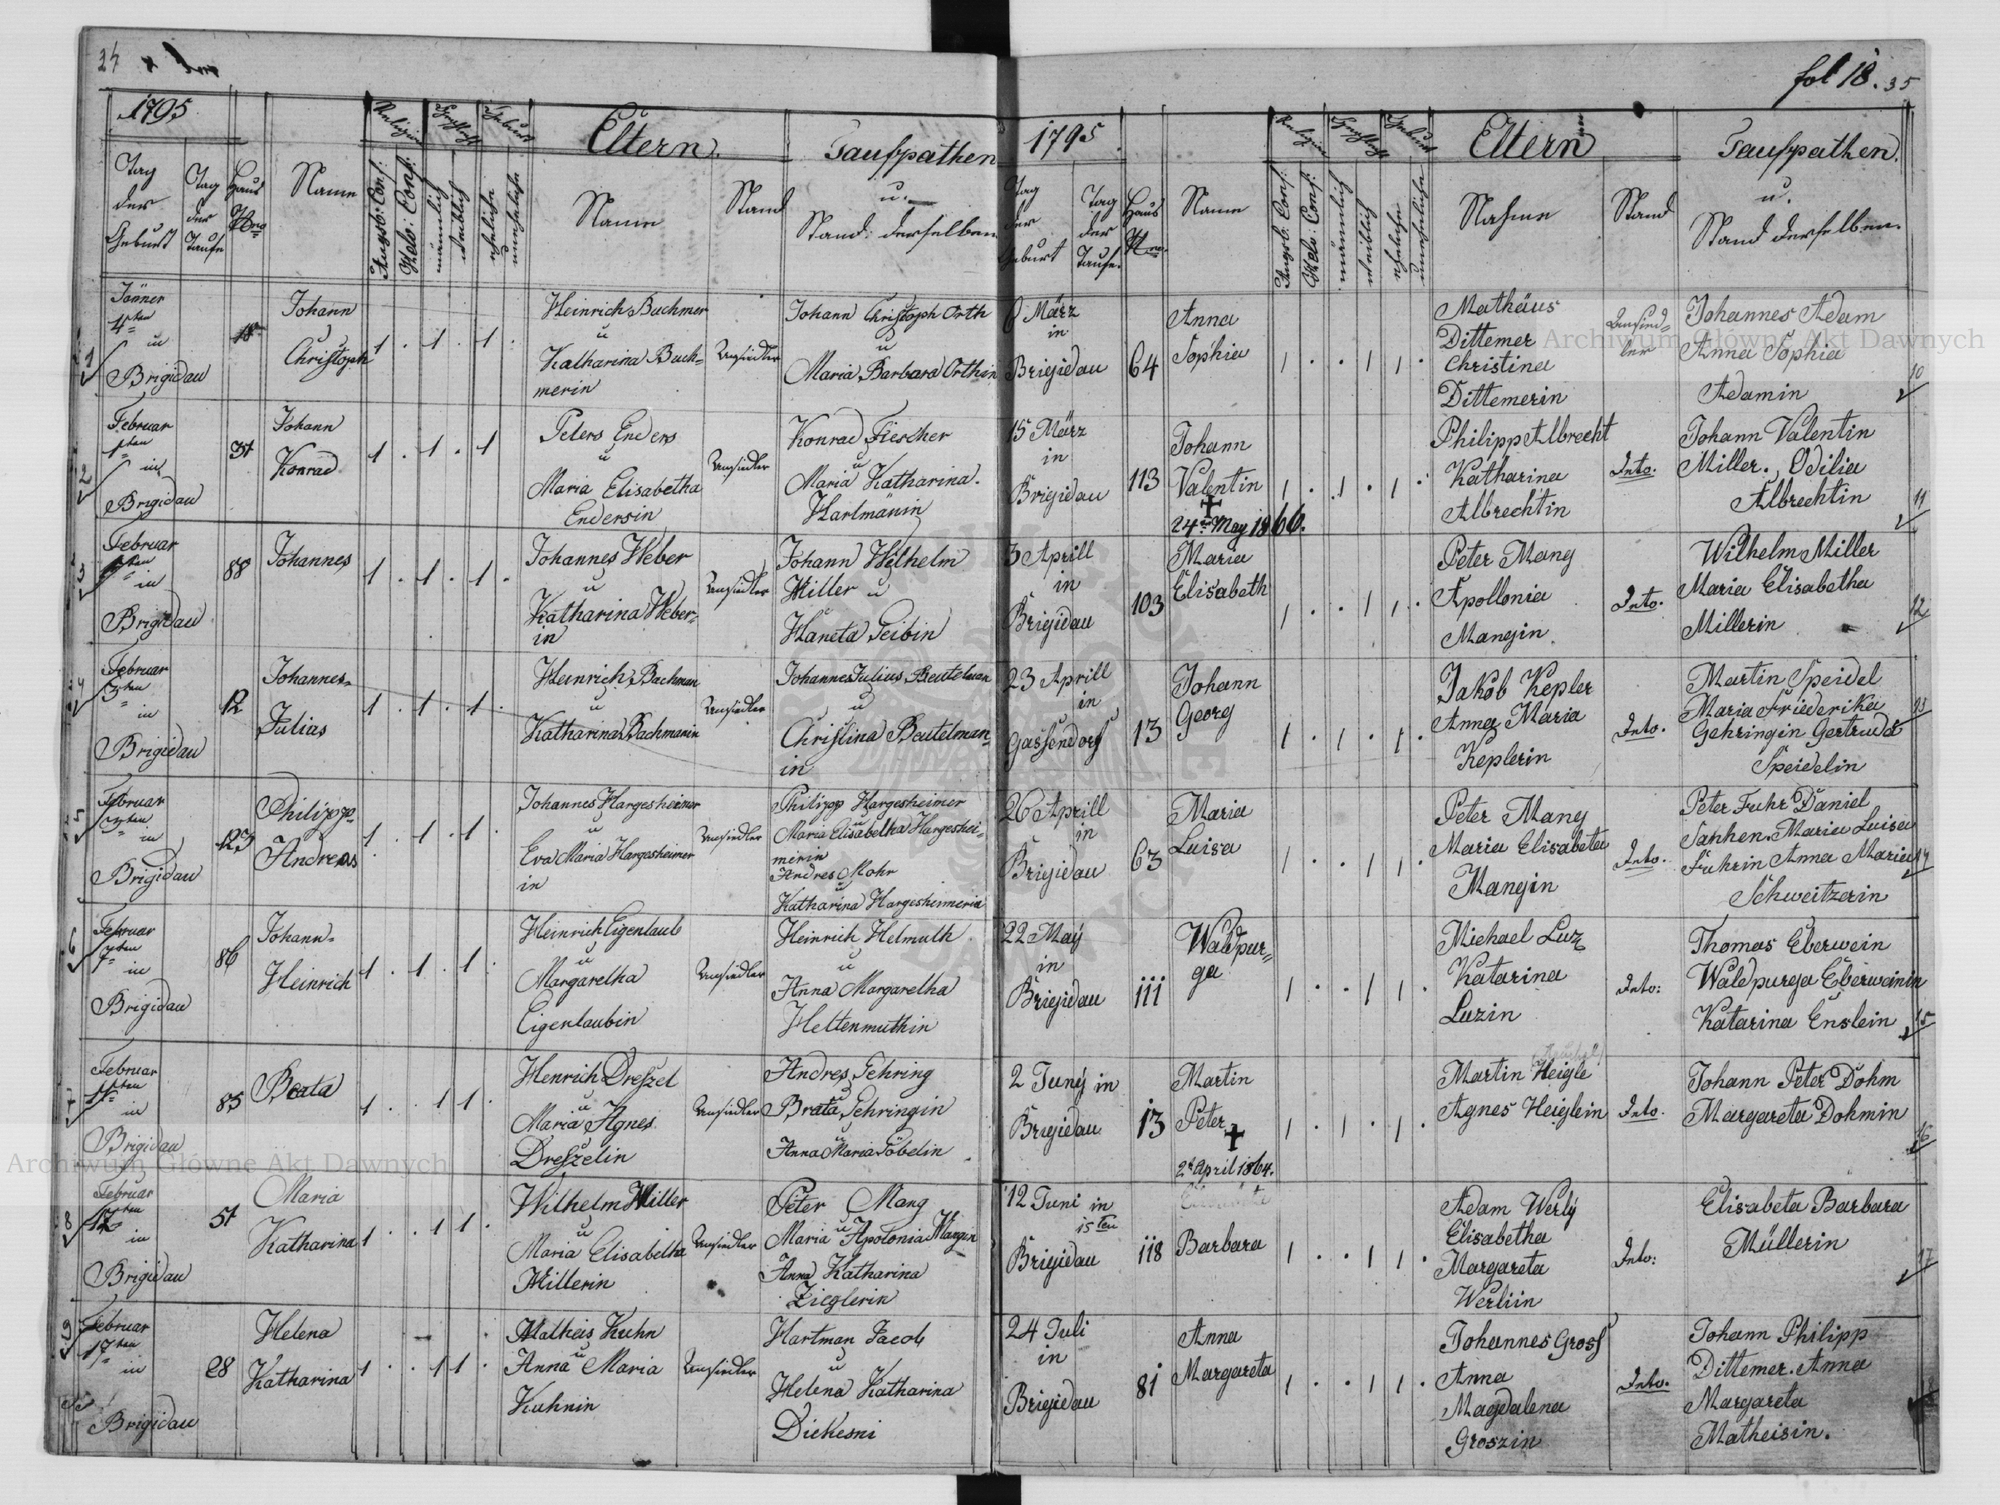 34
1795
Religion
Geschlecht
Geburt
Eltern.
Taufpathen
u.
Stand derselben
Tag
der
Geburt
Tag
der
Taufe
Haus
Nro
Name
Augsb: Conf.
Helv: Conf.
männlich
weiblich
eheliche
uneheliche
Name
Stand
1
Jänner
4ten
in
Brigidau
18
Johann
Christoph
1 . 1 . 1 .
Heinrich Bachmer
u
Katharina Bach=
merin
Ansiedler
Johann Christoph Orth
u
Maria Barbara Orthin
2
Februar
1ten
in
Brigidau
31
Johann
Konrad
1 . 1 . 1
Peters Enders
u
Maria Elisabetha
Endersin
Ansiedler
Konrad Fiescher
u
Maria Katharina.
Hartmänin
3
Februar
in
Brigidau
88
Johannes
1 . 1 . 1 .
Johannes Weber
u
Katharina Weber=
in
Ansiedler
Johann Wilhelm
Miller u
Haneta Seibin
4
Februar
3ten
in
Brigidau
12
Johannes=
Julias
1 . 1 . 1 .
Heinrich Bachman
u
Katharina Bachmanin
Ansiedler
Johannes Julius Beutelman
u
Christina Beutelman=
in
5
Februar
in
Brigidau
123
Philipp=
Andreas
1 . 1 . 1 .
Johannes Hargesheimer
u
Eva Maria Hargesheimer
in
Ansiedler
Philipp Hargesheimer
u
Maria Elisabetha Hargeshei=
merin
Andres Mohr
u
Katharina Hargesheimeria
6
Februar
7ten
in
Brigidau
86
Johann=
Heinrich
1 . 1 . 1 .
Heinrich Eigenlaub
u
Margaretha
Eigenlaubin
Ansiedler
Heinrich Helmuth
u
Anna Margaretha
Heltenmuthin
7
Februar
11ten
in
Brigidau
85
Beata
1 . . 1 1 .
Henrich Dreszel
u
Maria Agnes
Dreszelin
Ansiedler
Andres Gehring
u
Brata Gehringin
u
Anna Maria Göbelin
8
Februar
12ten
in
Brigidau
51
Maria
Katharina
1 . . 1 1 .
Wilhelm Miller
u
Maria Elisabetha
Millerin
Ansiedler
Peter Mang
u
Maria Apolonia Mangin
Anna Katharina
Zieglerin
9
Februar
17ten
in
Brigidau
28
Helena
Katharina
1 . . 1 1 .
Matheis Kuhn
u
Anna Maria
Kuhnin
Ansiedler
Hartman Jacob
u
Helena Katharina
Diekesni
fol 18. 35
1795
Religion
Geschlecht
Geburt
Eltern
Taufpathen.
u.
Stand derselben.
Tag
der
Geburt
Tag
der
Taufe.
Haus
Nro
Name
Augsb. Conf.
Helv: Conf.
männlich
weiblich
eheliche
uneheliche
Nahme
Stand
6 März
in
Brigidau
64
Anna
Sophia
1 . . 1 1 .
Mathäus
Dittemer
Christina
Dittemerin
Ansied=
ler
Johannes Adam
Anna Sophia
Adamin
10
15 März
in
Brigidau
113
Johann
Valentin
✝
24ten May 1866.
1 . 1 . 1 .
Philipp Albrecht
Katharina
Albrechtin
Dnto.
Johann Valentin
Miller. Odilia
Albrechtin
11
3 Aprill
in
Brigidau
103
Maria
Elisabeth
1 . . 1 1 .
Peter Mang
Apollonia
Mangin
Dnto.
Wilhelm Miller
Maria Elisabetha
Millerin
12
23 Aprill
in
Gassendorf
13
Johann
Georg
1 . 1 . 1 .
Jakob Kepler
Anna Maria
Keplerin
Dnto.
Martin Speidel
Maria Friederika
Gehringin Gertruda
Speidelin
13
26 Aprill
in
Brigidau
63
Maria
Luisa
1 . . 1 1
Peter Mang
Maria Elisabeta
Mangin
Dnto.
Peter Fuhr Daniel
Sanhen. Maria Luisa
Fuhrin Anna Maria
Schweitzerin
14
22 May
in
Brigidau
111
Waldpur=
ga
1 . . 1 1 .
Michael Luz
Katarina
Luzin
Dnto:
Thomas Eberwein
Waldpurga Eberweinin
Katarina Enslein
15
2 Juny in
Brigidau
13
Martin
Peter
✝
2t April 1864.
1 . 1 . 1 .
Martin Heigle
Agnes Heiglein
Dnto.
Johann Peter Dohm
Margareta Dohmin
16
12 Juni in
15ten
Brigidau
118
Elisabeta
Barbara
1 . . 1 1 .
Adam Werly
Elisabetha
Margareta
Werliin
Dnto:
Elisabeta Barbara
Müllerin
17
24 Juli
in
Brigidau
81
Anna
Margareta
1 . . 1 1 .
Johannes Grosz
Anna
Magdalena
Groszin
Dnto.
Johann Philipp
Dittemer. Anna
Margareta
Matheisin.
Archiwum Główne Akt Dawnych
Archiwum Główne Akt Dawnych